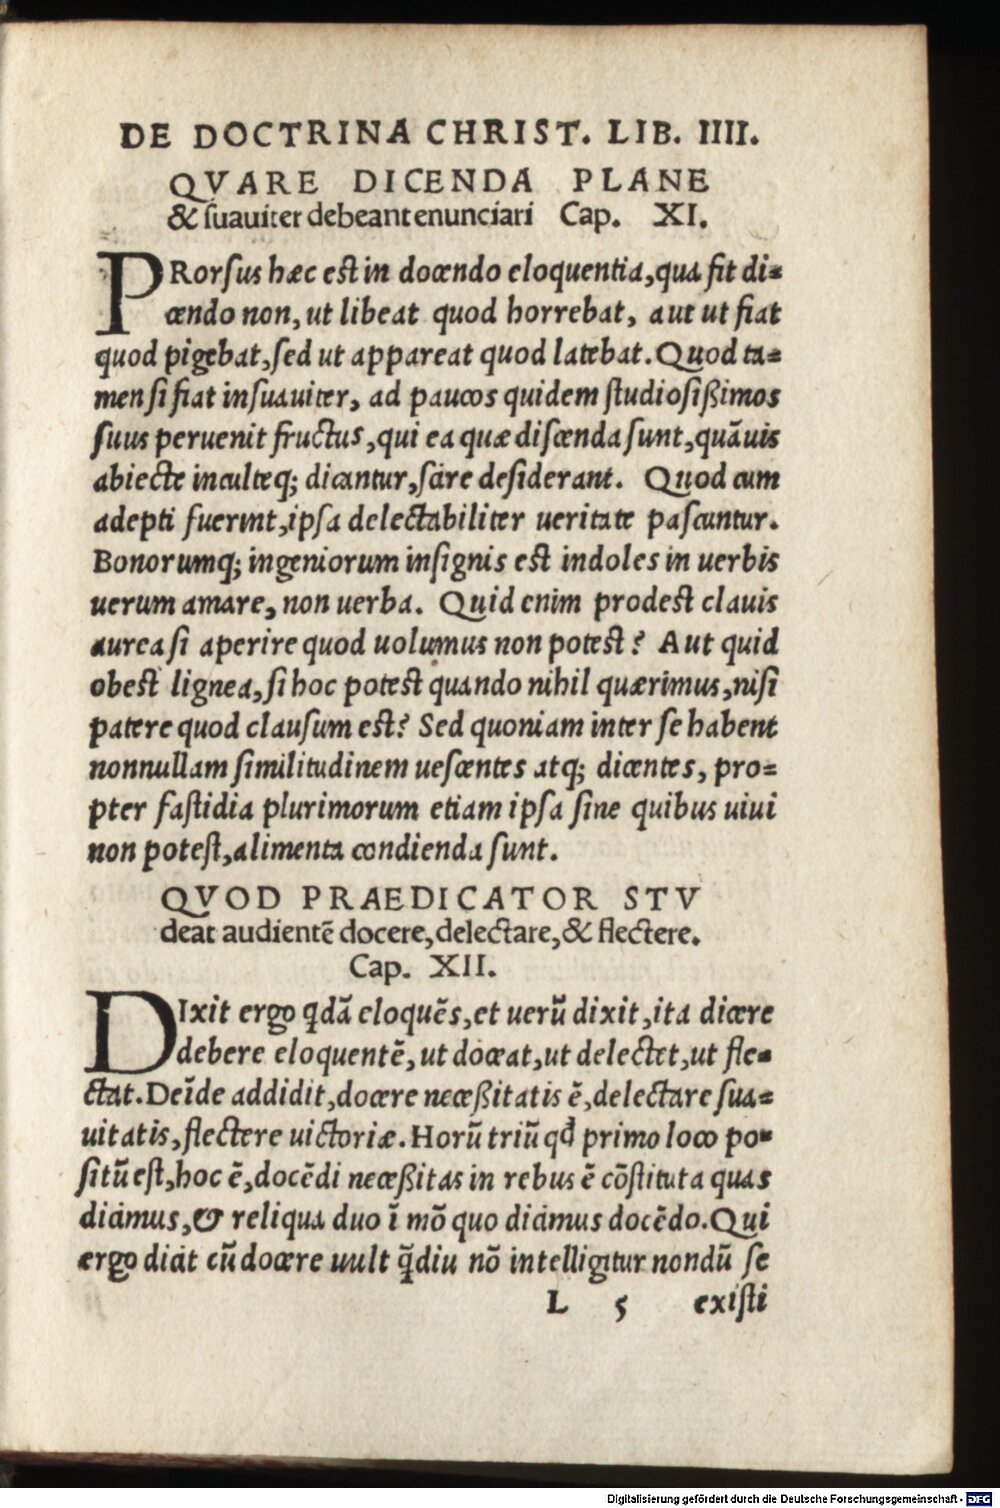 DE DOCTRINA CHRIST. LIB. IIII.
QVARE DICENDA PLANE
& suauiter debeant enunciari Cap. XI.
PRorsus hæc est in docendo eloquentia, qua fit di=
cendo non, ut libeat quod horrebat, aut ut fiat
quod pigebat, sed ut appareat quod latebat. Quod ta=
men si fiat insuauiter, ad paucos quidem studiosißimos
suus peruenit fructus, qui ea quæ discenda sunt, quāuis
abiecte inculteq; dicantur, scire desiderant. Quod cum
adepti fuerint, ipsa delectabiliter ueritate pascuntur.
Bonorumq; ingeniorum insignis est indoles in uerbis
uerum amare, non uerba. Quid enim prodest clauis
aurea si aperire quod uolumus non potest? Aut quid
obest lignea, si hoc potest quando nihil quærimus, nisi
patere quod clausum est? Sed quoniam inter se habent
nonnullam similitudinem uescentes atq; dicentes, pro=
pter fastidia plurimorum etiam ipsa sine quibus uiui
non potest, alimenta condienda sunt.
QVOD PRAEDICATOR STV
deat audientē docere, delectare, & flectere.
Cap. XII.
DIxit ergo qdā eloquēs, et uerū dixit, ita dicere
debere eloquentē, ut doceat, ut delectet, ut fle=
ctat. Deīde addidit, docere neceßitatis ē, delectare sua=
uitatis, flectere uictoriæ. Horū triū qd primo loco po=
sitū est, hoc ē, docēdi neceßitas in rebus ē cōstituta quas
dicimus, & reliqua duo ī mō quo dicimus docēdo. Qui
ergo dicit cū docere uult q̄diu nō intelligitur nondū se
L 5 existi
Digitalisierung gefördert durch die Deutsche Forschungsgemeinschaft - DFG